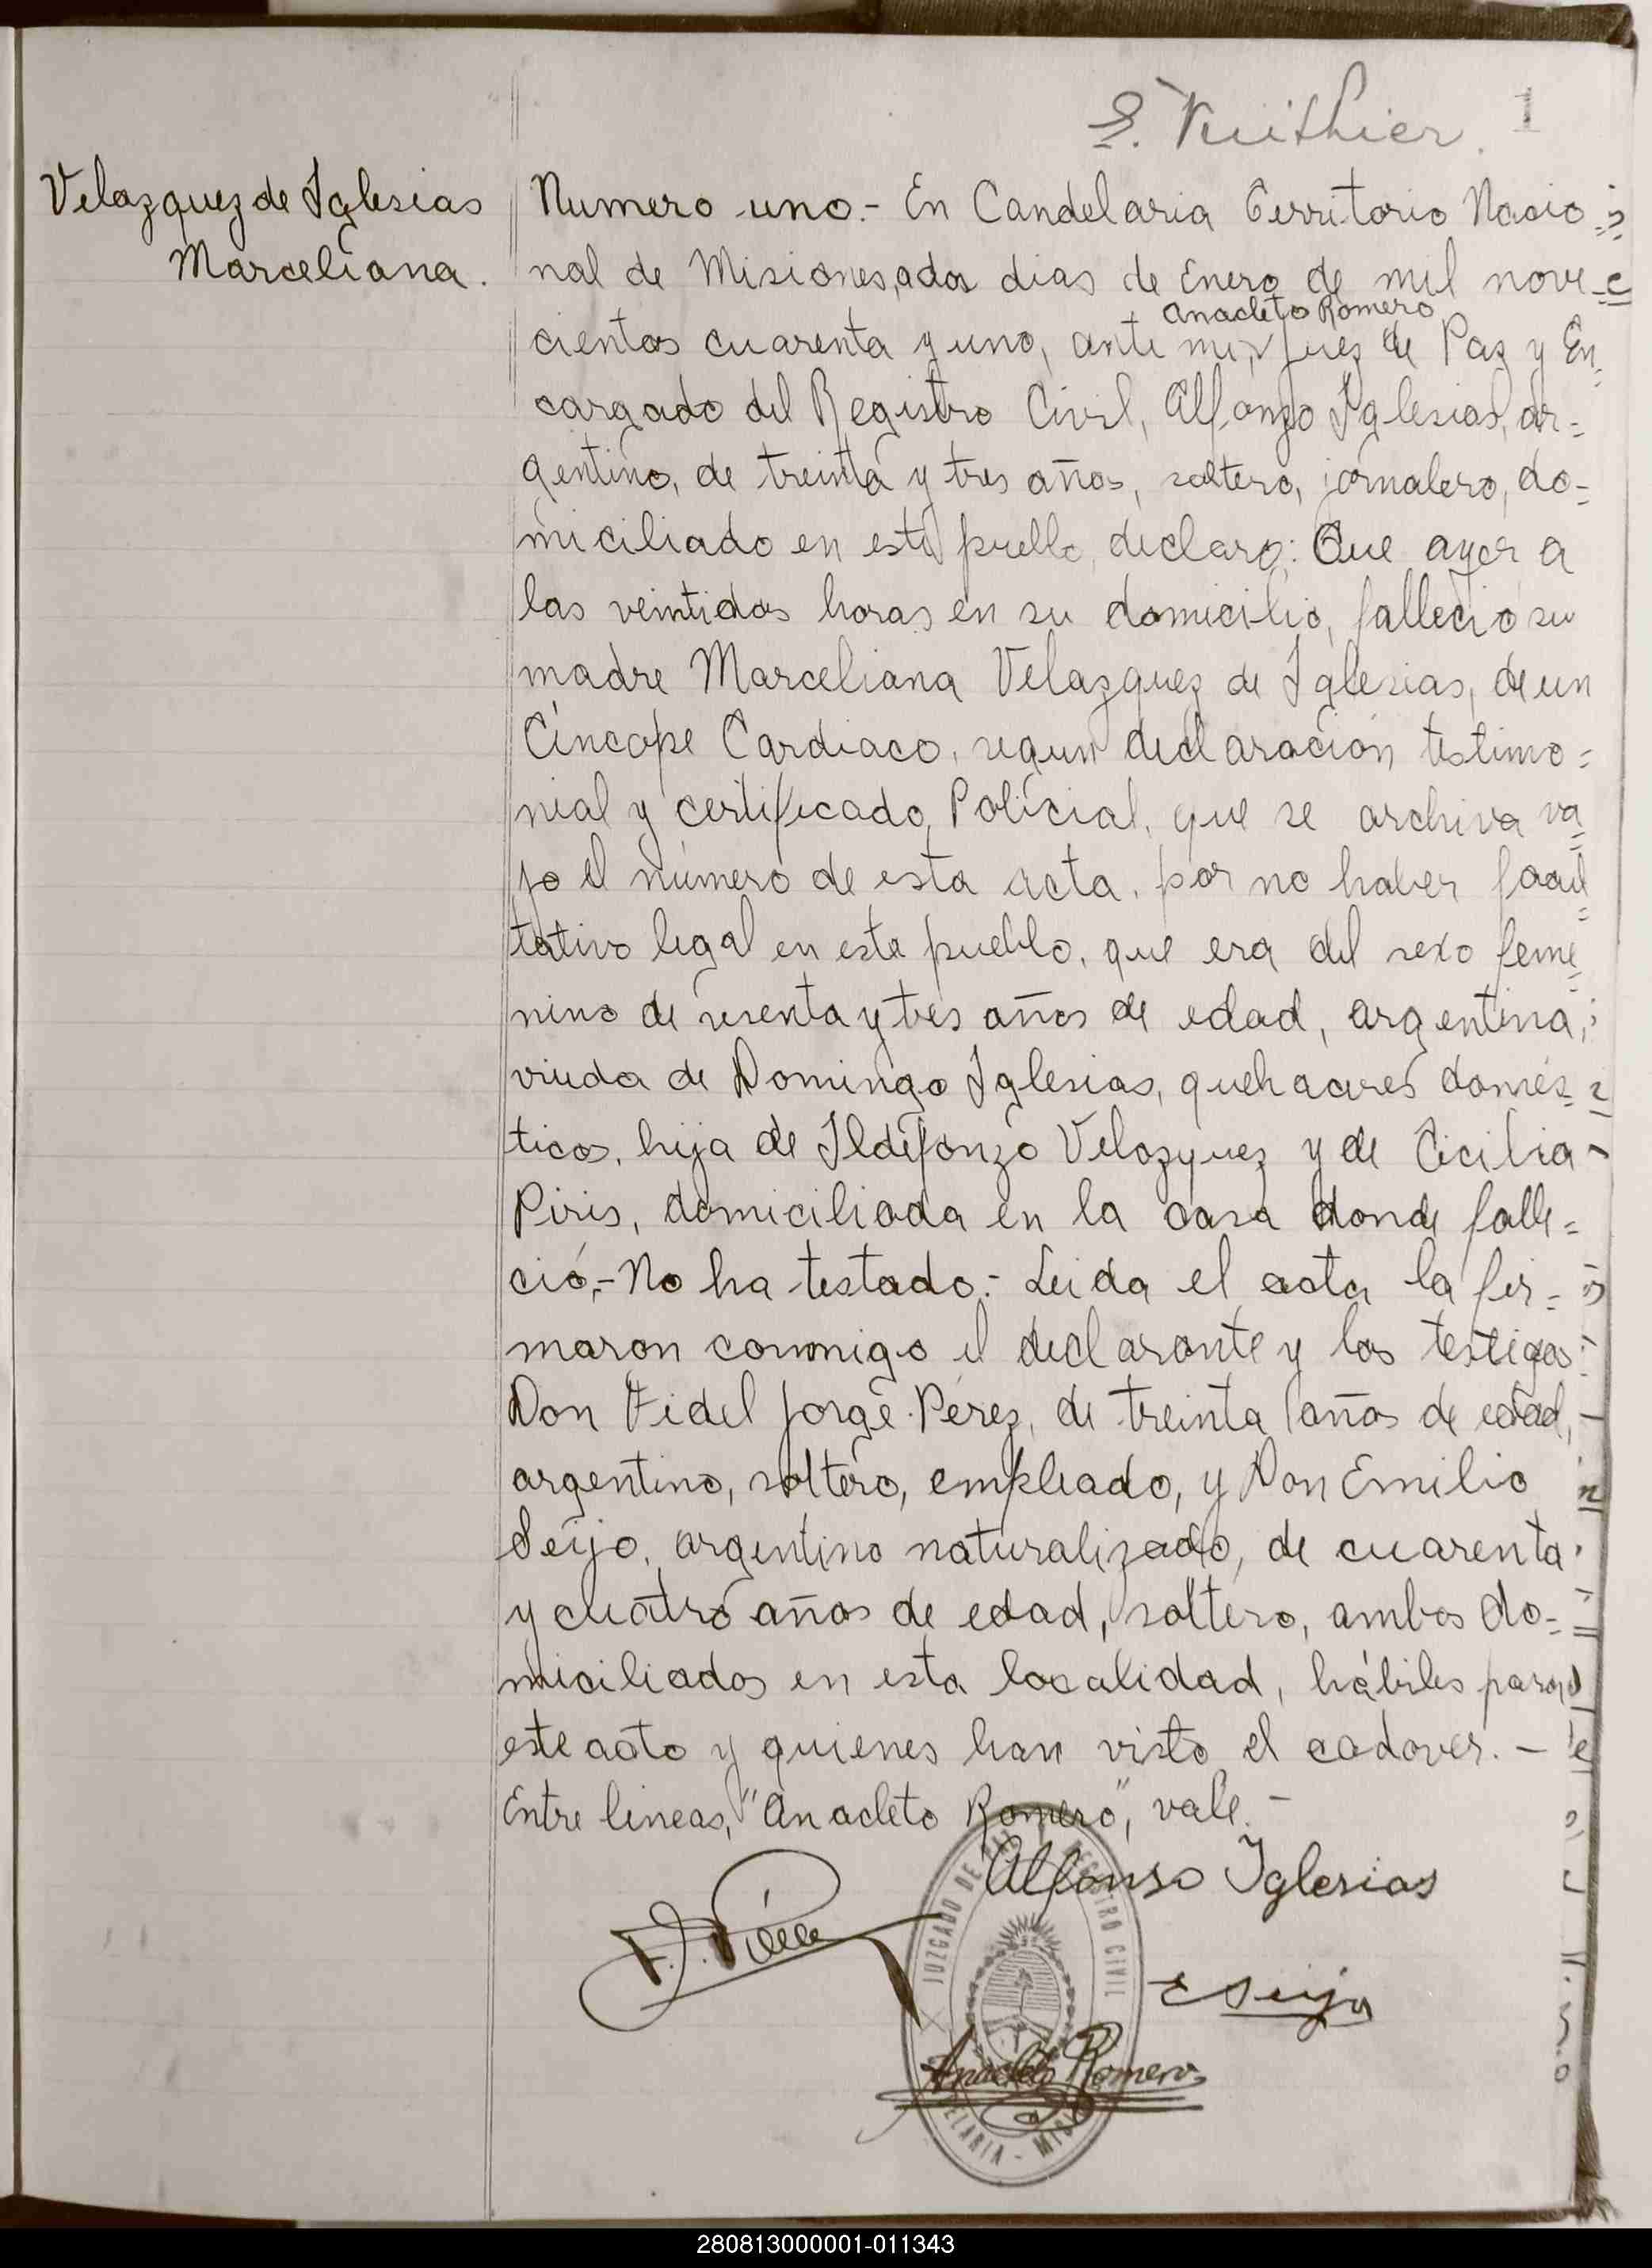 1
Velazquez de Iglesias
Marceliana.
Numero uno.- En Candelaria Territorio Nacio=
nal de Misiones, a dos dias de Enero de mil nove=
Anacleto Romero
cientos cuarenta y uno, ante mi, Juez de Paz y En=
cargado del Registro Civil, Alfonzo Iglesias, ar=
gentino, de treinta y tres años, soltero, jornalero, do=
miciliado en este pueblo, declaro: Que ayer a
las veintidos horas en su domicilio, falleció su
madre Marceliana Velazquez de Iglesias, de un
Cíncope Cardiaco, segun declaración testimo=
nial y certificado Policial, que se archiva va=
jo el número de esta acta, por no haber facul=
tativo legal en este pueblo, que era del sexo feme=
nino de sesenta y tres años de edad, argentina,
viuda de Domingo Iglesias, quehaceres domés=
ticos, hija de Ildefonzo Velazquez y de Cicilia
Piris, domiciliada en la casa donde falle=
ció,- No ha testado.- Leida el acta la fir=
maron conmigo el declarante y los testigos
Don Fidel Jorge Pérez, de treinta años de edad,
argentino, soltero, empleado, y Don Emilio
Seijo, argentino naturalizado, de cuarenta
y cuatro años de edad, soltero, ambos do=
miciliados en esta localidad, hábiles para
este acto y quienes han visto el cadaver.-
Entre lineas, "Anacleto Romero", vale.-
Alfonso Iglesias
E Seijo
JUZGADO DE PAZ REGISTRO CIVIL
Anacleto Romero
CANDELARIA - MISIONES
280813000001-011343